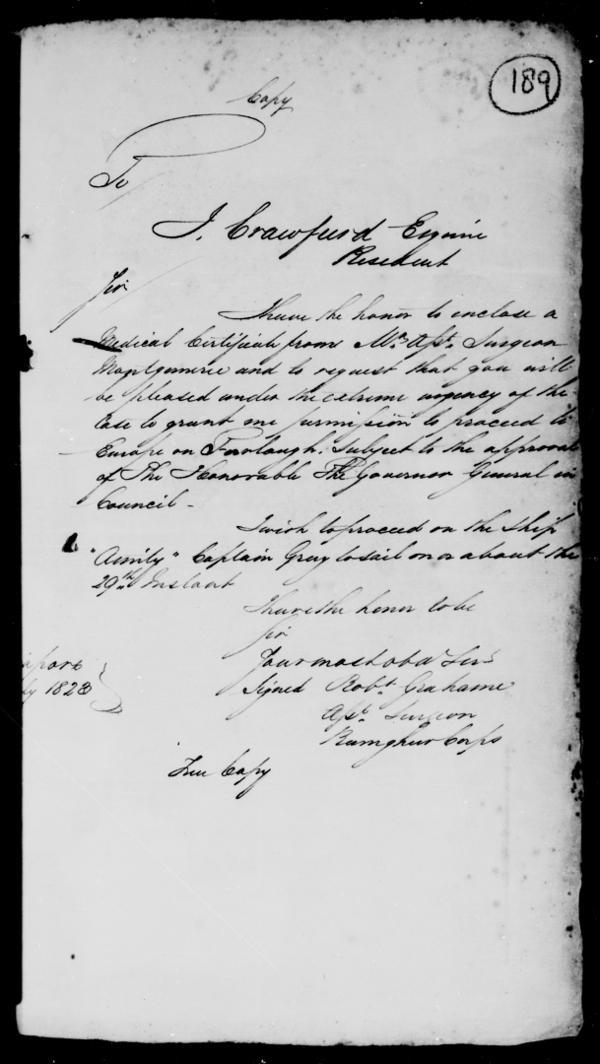 189
Copy
To
J. Crawfurd Esquire
Resident
Sir
I have the honor to inclose a
Medical Certificate from Mr. Asst. Surgeon
Montgomerie and to request that you will
be pleased under the extreme urgency of the
Case to grant me permission to proceed to
Europe on Furlough. Subject to the approval
of The Honorable The Governor General in
Council -
I wish to proceed on the Ship
"Amity" Captain Gray to sail on or about the
29th. Instant
I have the honor to be
Sir
Your most obdt Servt
Signed Robt. Grahame
Asst. Surgeon
Ramghur Corps
apore
ly 1823
True Copy